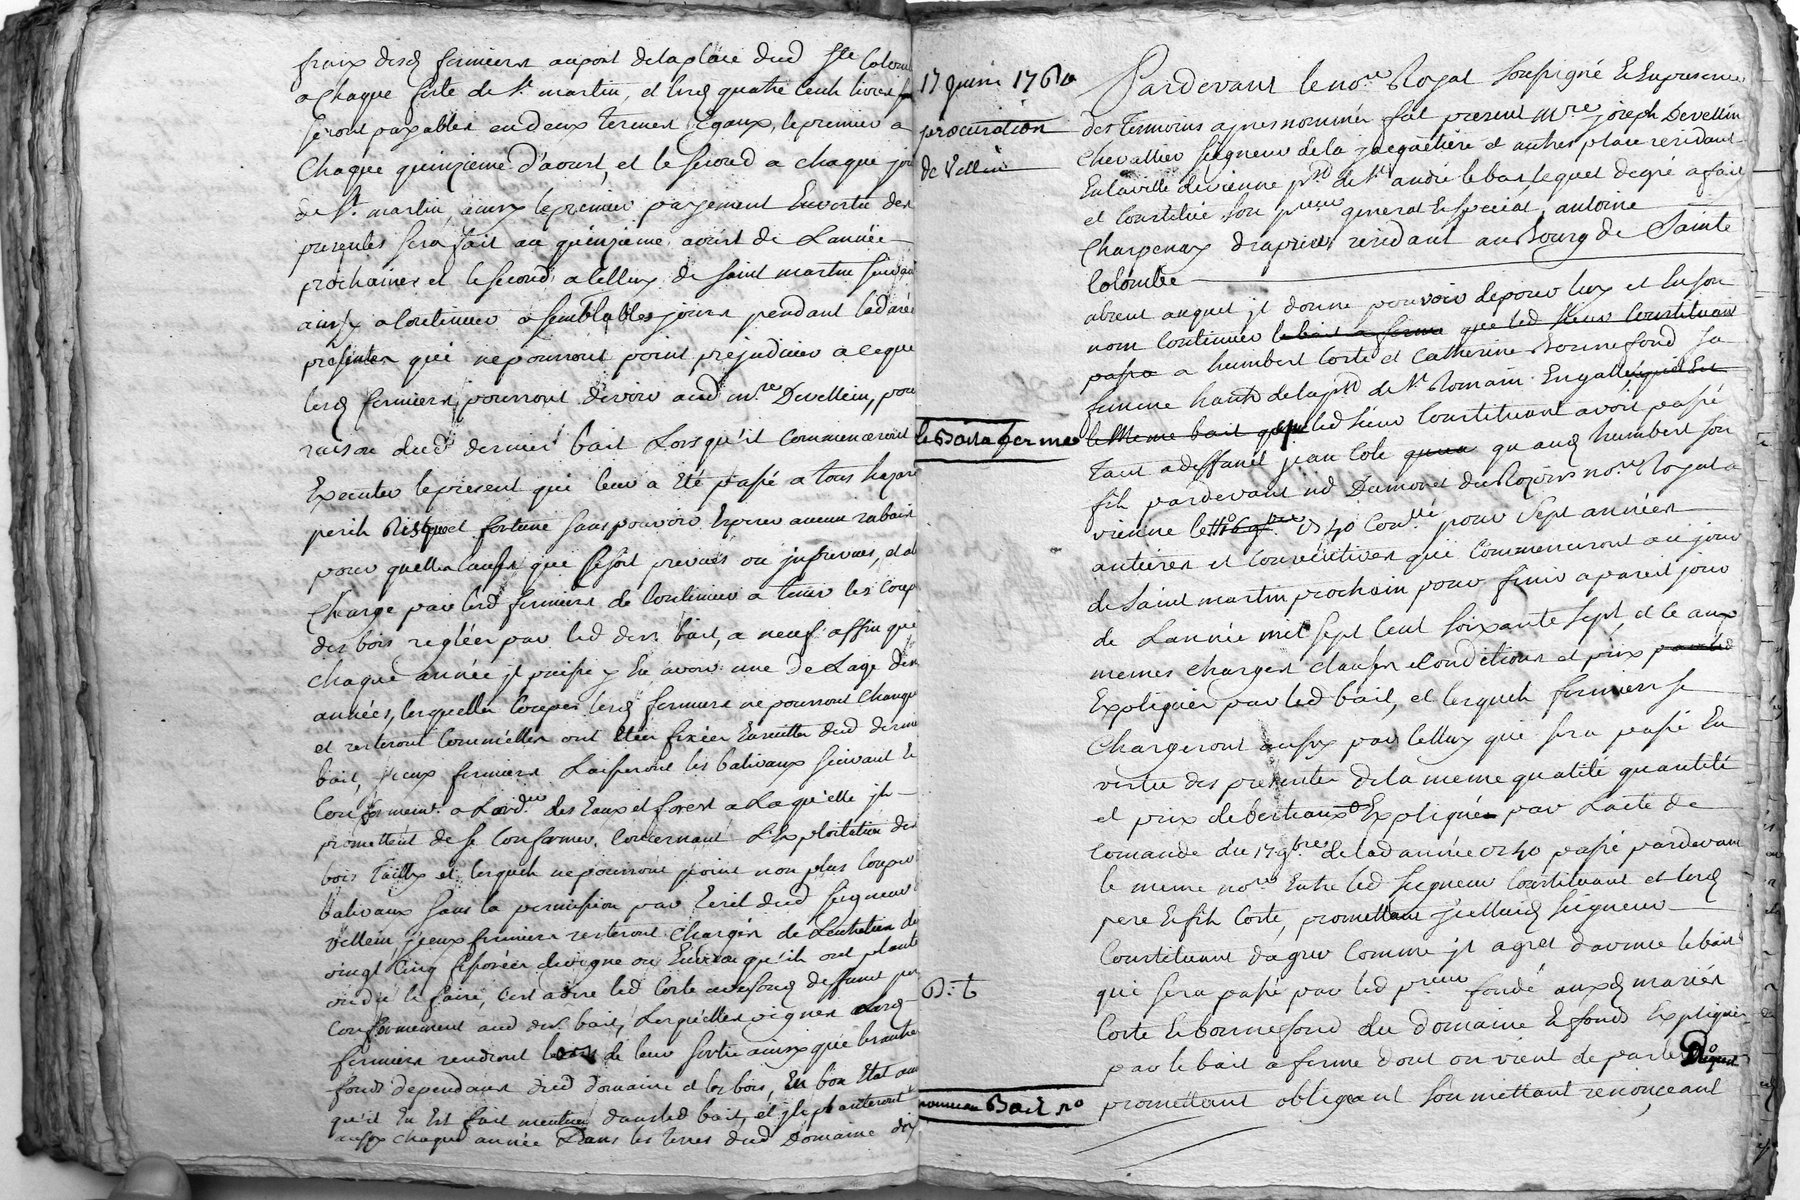 fraix desd fermiers au port de la place dud Ste Colom
a chaque feste de St martin, et lesd quatre cent livres
seront payables en deux termes egaux, le premier a
chaque quinzieme d'aoust, et le second a chaque jou
de St martin, ainsy le premier payement en vertu des
presentes sera fait au quinzieme aoust de Lannée
prochaines et le second a celluy de saint martin suivant
ainsy a continuer a semblables jours pendant
presentes qui ne pourront point prejudicier a ceque
lesd fermiers pourront devoir aud mre Devellein, pour
raison dud dernier bail Lors qu'il commenceront
Executer le present qui leur a été passé a tous hazard
peril Risque et fortune sans pouvoir Esperer aucun rabais
pour quelle cause que se soit prevues ou jmprevues, et a
charge par lesd fermiers de continuer a tenir les coup
des bois reglées par led der bail, a neuf affin que
chaque année jl puisse y En avoir une de L'age des
années, lesquelles coupes lesd fermiers ne pourront change
et resteront comme elles ont étées fixées Ensuitte dud dernie
bail, jceux fermiers Laisseront les balivaux suivant et
Conformemt a Lordce des Eaux et forest a La qu'elle jls
promettent de se Conformer, Concernant L'Exploitation des
bois Taillis et lesquels ne pourront point non plus couper
balivaux sans la permission par Ecrit dud Seigneur
Vellein, jceux fermiers resteront chargés de Lentretien de
vingt cinq foserées de vigne ou Environ qu'ils ont planté
ou du le faire, c'est a dire led Corte avec son deffunt per
Conformement aud der bail, Lesquelles vignes lesd
fermiers rendront lors de leur sortie ainsy que les autre
fonds dependans dud domaine et les bois, En bon Etat ain
qu'il En Est fait mention dans led bail, et jls planteront
aussy chaque année Dans les terres dud Domaine dix
17 Juin 1760
procuration
de Vellein
le Bail a ferme
nouveau Bail no
Pardevant le nore Royal soussigné et En presence
des Temoins apres nommés fut present Mre joseph Devellein
chevallier Seigneur de la jacquetiere et autres place residant
En la ville de vienne psse de St andré le bas lequel de gré a fait
et constitué son procur general et special, antoine
Charpenay drapier residant au Bourg de Sainte
Colombe
absent auquel jl donne pouvoir de pour luy et En son
nom Continuer le bail a ferme que led sieur Constituant
passe a humbert Corte et Catherine Bonnefond sa
femme hants de la psse de St Romain En galle, qui Est
le meme bail que led sieur Constituant avoit passé
tant a deffunt jean Cote qu'aud humbert son
fils pardevant nd Dumonet des Rozoirs nore Royal a
vienne 1740 Conllé pour sept années
antieres et consecutives qui commenceront au jour
de Saint martin prochain pour finir a pareil jour
de Lannée mil sept cent soixante sept et ce aux
memes charges clauses Conditions et prix
Expliqués par led bail, et lesquels fermiers se
chargeront aussy par celluy qui sera passé En
vertu des presentes de la meme qualité quantité
et prix de bestiaux Expliqués par L'acte de
Comande du 17 9bre de lad année 1740 passé pardevant
le meme nore Entre led Seigneur Constituant et lesd
pere et fils Corte, promettant jcelluid Seigneur
Constituant d'agreer Comme jl agrée d'avance le bail
qui sera passé par led procur fondé auxd mariés
Corte et Bonnefond du domaine et fonds Expliqués
par le bail a ferme dont on vient de parler
promettant obligeant Soumettant renonçeant